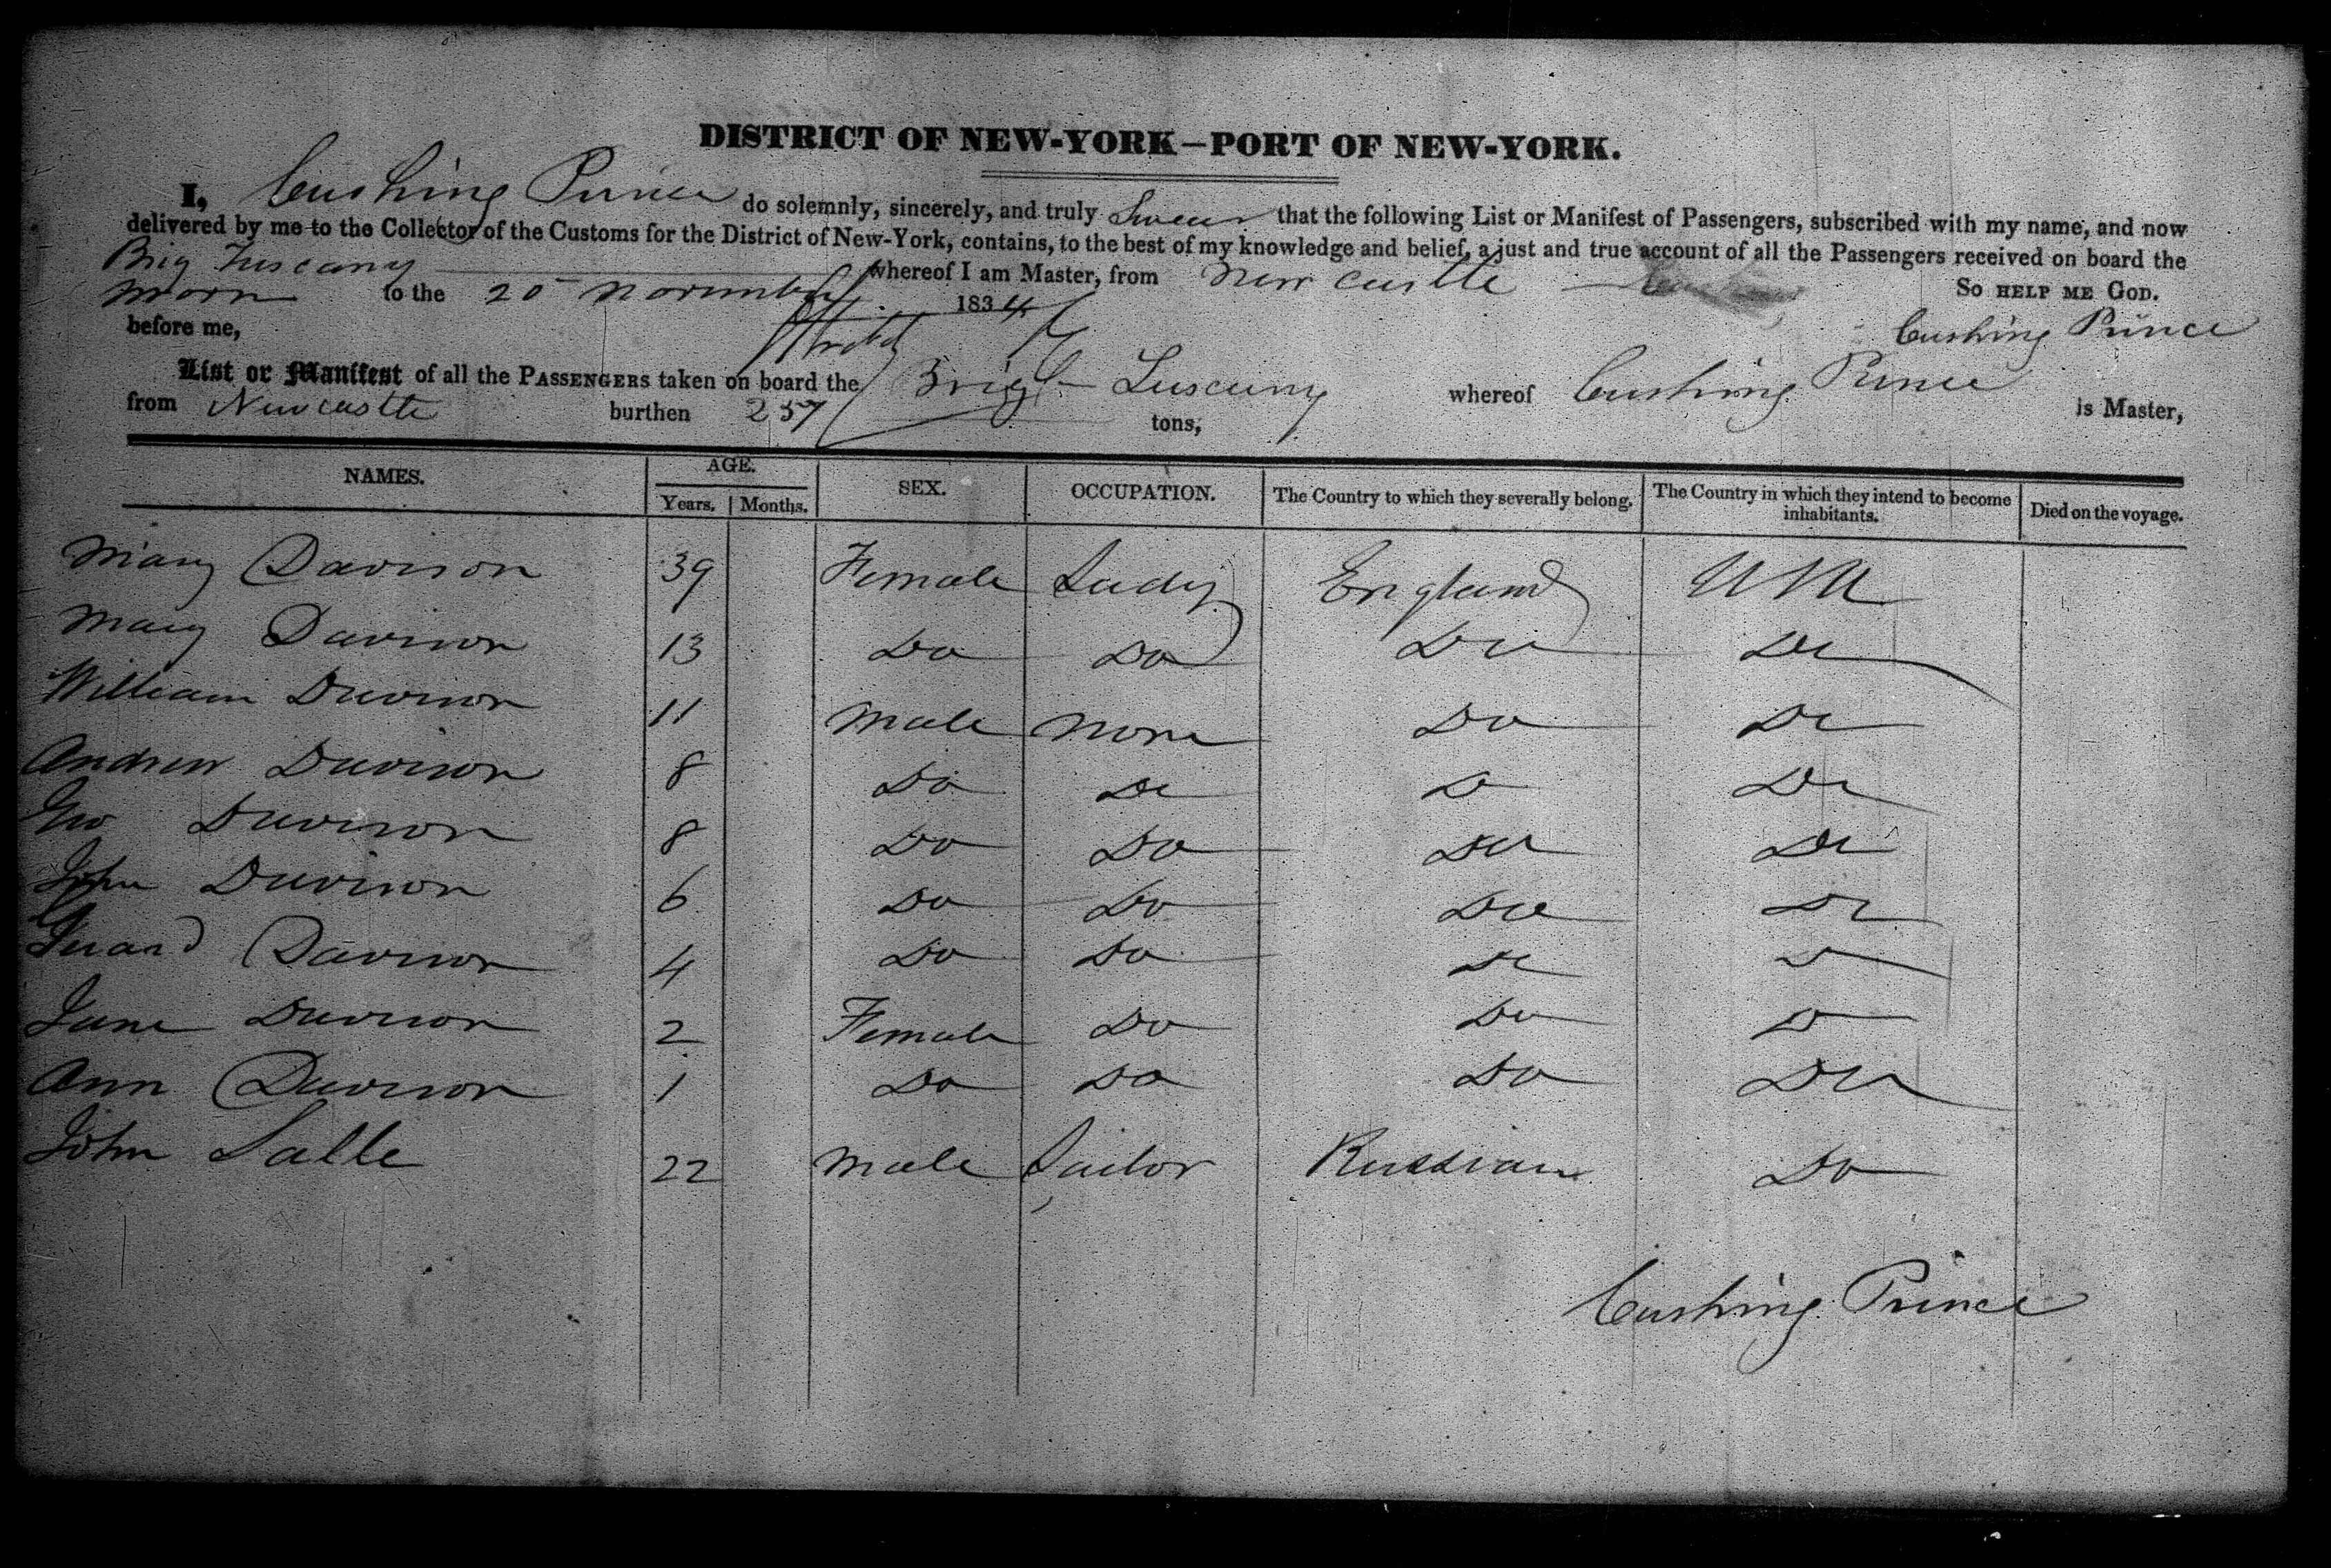 DISTRICT OF NEW-YORK—PORT OF NEW-YORK.
I, Cushing Prince do solemnly, sincerely, and truly Swear that the following List or Manifest of Passengers, subscribed with my name, and now
delivered by me to the Collector of the Customs for the District of New-York, contains, to the best of my knowledge and belief, a just and true account of all the Passengers received on board the
Brig Tuscany whereof I am Master, from New Castle
Sworn to the 20 November 1834 So HELP ME GOD.
before me, Cushing Prince
List or Manifest of all the PASSENGERS taken on board the Brig Tuscany whereof Cushing Prince is Master,
from Newcastle burthen 257 tons,
NAMES. AGE. SEX. OCCUPATION. The Country to which they severally belong. The Country in which they intend to become inhabitants. Died on the voyage.
Years. Months.
Mary Davison 39 Female Lady England U
Mary Davison 13 Do Do Do Do
William Davison 11 Male None Do Do
Andrew Davison 8 Do Do D Do
Geo Davison 8 Do Do Do Do
John Davison 6 Do Do Do Do
Davison 4 Do Do Do D
Jane Davison 2 Female Do Do D
Ann Davison 1 Do Do Do Do
John Salle 22 Male Sailor Russian Do
Cushing Prince